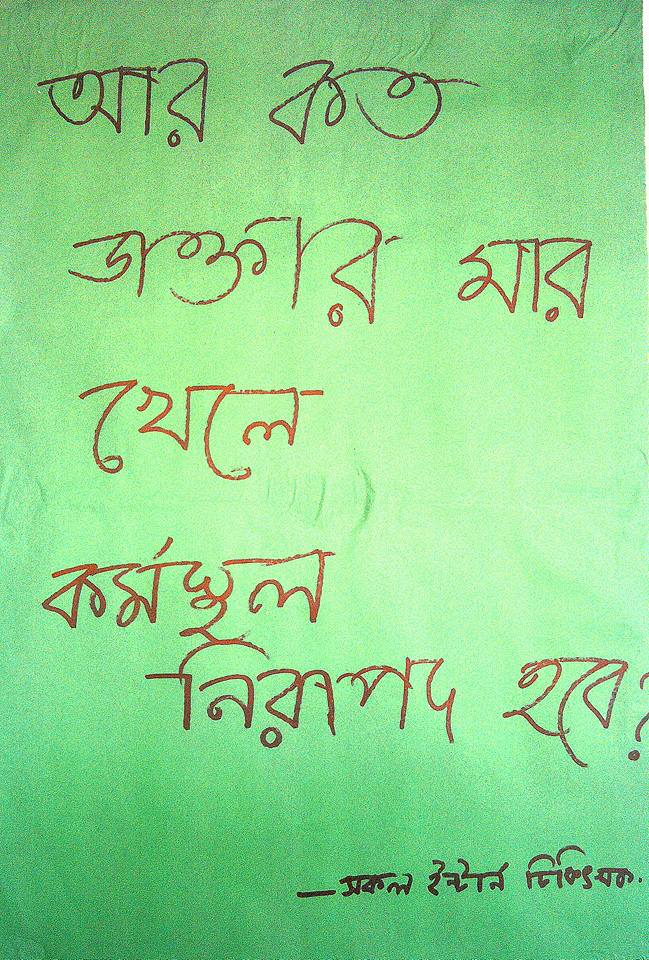 আর কত
ডাক্তার মার
খেলে
কর্মস্থল
নিরাপদ হবে?
—সকল ইন্টার্ন চিকিৎসক.